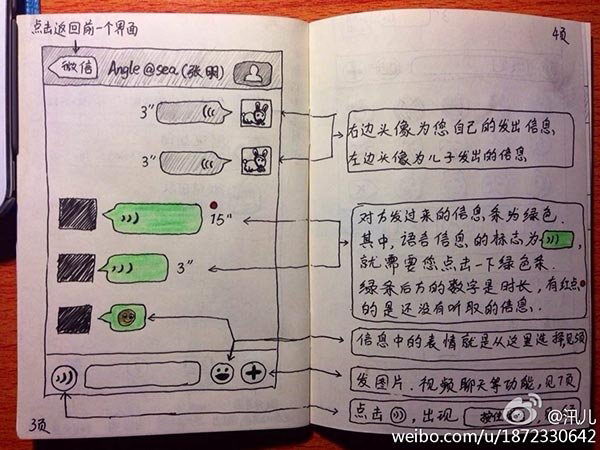 点击返回前一个界面
微信
Angle@sea(张明)
3"
3"
15"
3"
3页
4页
右边头像为您自己的发出信息
左边头像为儿子发出的信息
对方发过来的信息条为绿色.
其中,语音信息的标志为
就需要您点击一下绿色条.
绿条后方的数字是时长,有红点
的是还没有听取的信息.
信息中的表情就是从这里选择,见
发图片.视频聊天等功能,见7页
点击 ,出现 按住
@汛儿
weibo.com/u/1872330642